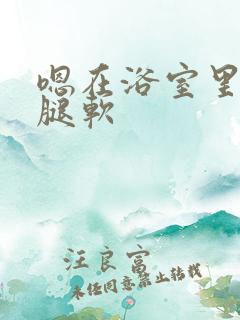 嗯在浴室里
腿软
汪良富
未经同意禁止转载